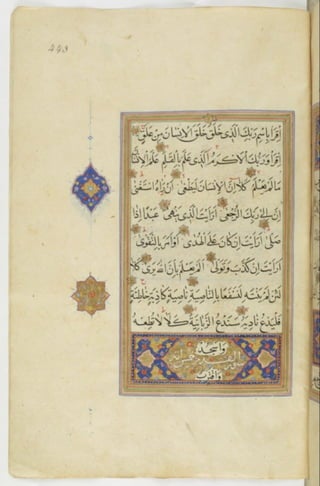 ٤٤٥
اقرا باسم ربك الذي خلق خلق الانسان من علق
اقرا وربك الاكرم الذي علم بالقلم علم الانسان
ما لم يعلم كلا ان الانسان ليطغى ان راه استغنى
ان الى ربك الرجعى ارايت الذي ينهى عبدا اذا
صلى ارايت ان كان على الهدى او امر بالتقوى
ارايت ان كذب وتولى الم يعلم بان الله يرى كلا
لئن لم ينته لنسفعا بالناصية ناصية كاذبة خاطئة
فليدع ناديه سندع الزبانية كلا لا تطعه
واسجد
واقترب